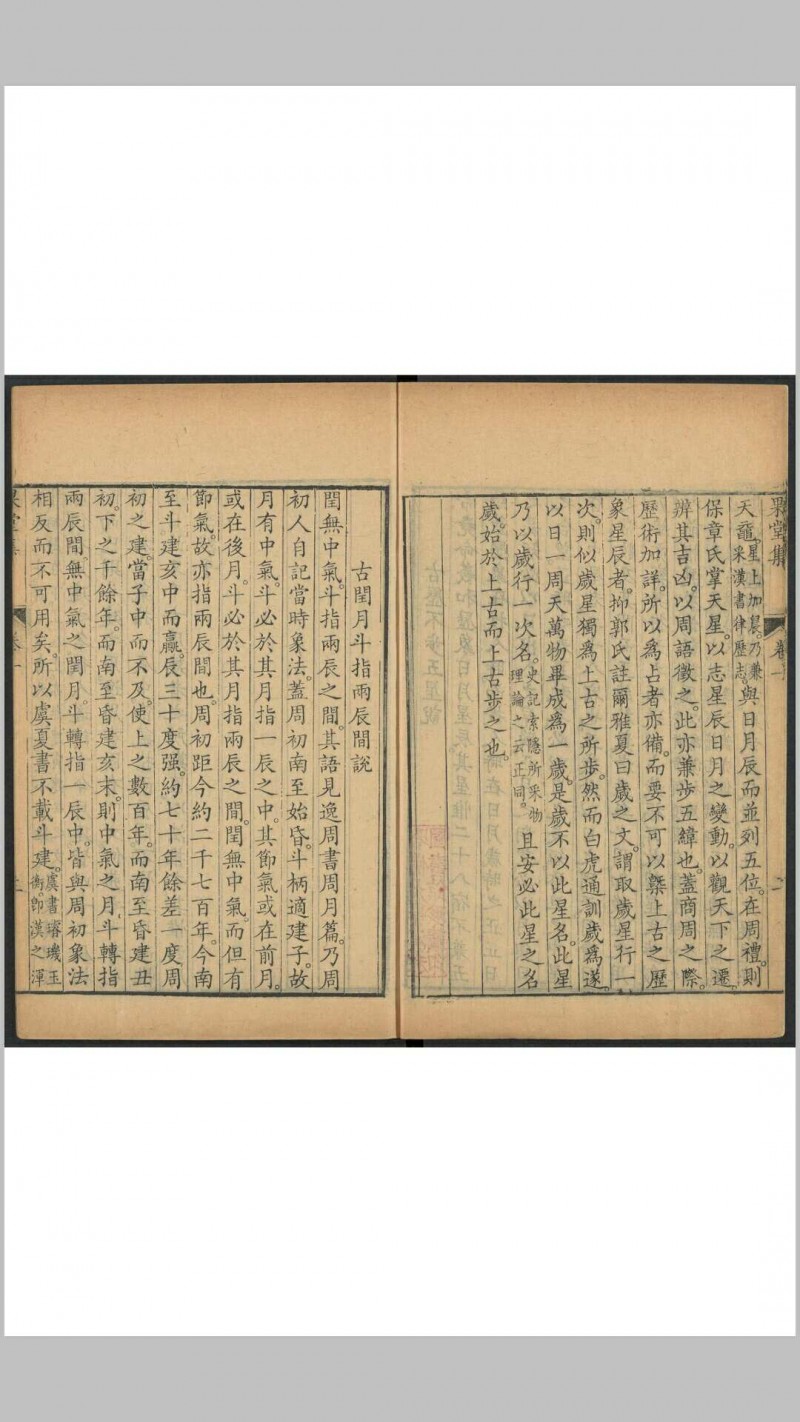 果堂集
卷一
二
天黿。星上加晨。乃兼采漢書律歷志。與日月辰而並列五位。在周禮。則
保章氏掌天星。以志星辰日月之變動。以觀天下之遷。
辨其吉凶。以周語徵之。此亦兼步五緯也。蓋商周之際。
歷術加詳。所以爲占者亦備。而要不可以槩上古之歷
象星辰者。抑郭氏註爾雅夏曰歲之文。謂取歲星行一
次。則似歲星獨爲上古之所步。然而白虎通訓歲爲遂。
以日一周天萬物畢成爲一歲。是歲不以此星名。此星
乃以歲行一次名。史記索隱所采物理論之云正同。且安必此星之名
歲。始於上古而上古步之也。
古閏月斗指兩辰間說
閏無中氣。斗指兩辰之間。其語見逸周書周月篇。乃周
初人自記當時象法。蓋周初南至始昏。斗柄適建子。故
月有中氣。斗必於其月指一辰之中。其節氣或在前月。
或在後月。斗必於其月指兩辰之間。閏無中氣。而但有
節氣。故亦指兩辰間也。周初距今約二千七百年。今南
至斗建亥中而贏。辰三十度强。約七十年餘差一度。周
初之建。當子中而不及。使上之數百年。而南至昏建丑
初。下之千餘年。而南至昏建亥末。則中氣之月。斗轉指
兩辰間。無中氣之閏月。斗轉指一辰中。皆與周初象法
相反而不可用矣。所以虞夏書不載斗建。虞書璿璣玉衡。卽漢之渾